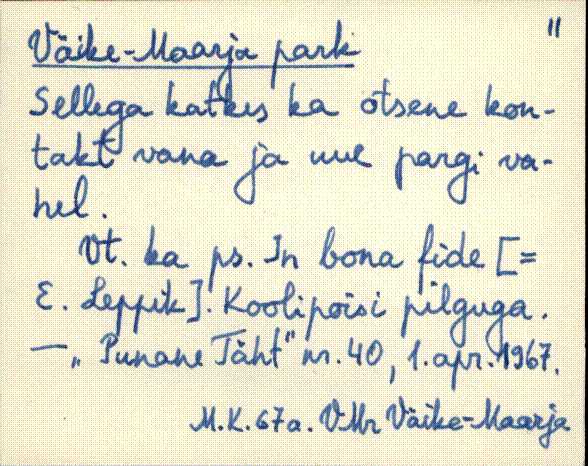 11
Väike-Maarja park
Sellega katkes ka otsene kon-
takt vana ja uue pargi va-
hel.
Vt. ka ps. In bona fide [=
E. Leppik]. Koolipoisi pilguga.
— „Punane Täht" nr. 40, 1. apr. 1967.
M.K. 67a. VMr Väike-Maarja